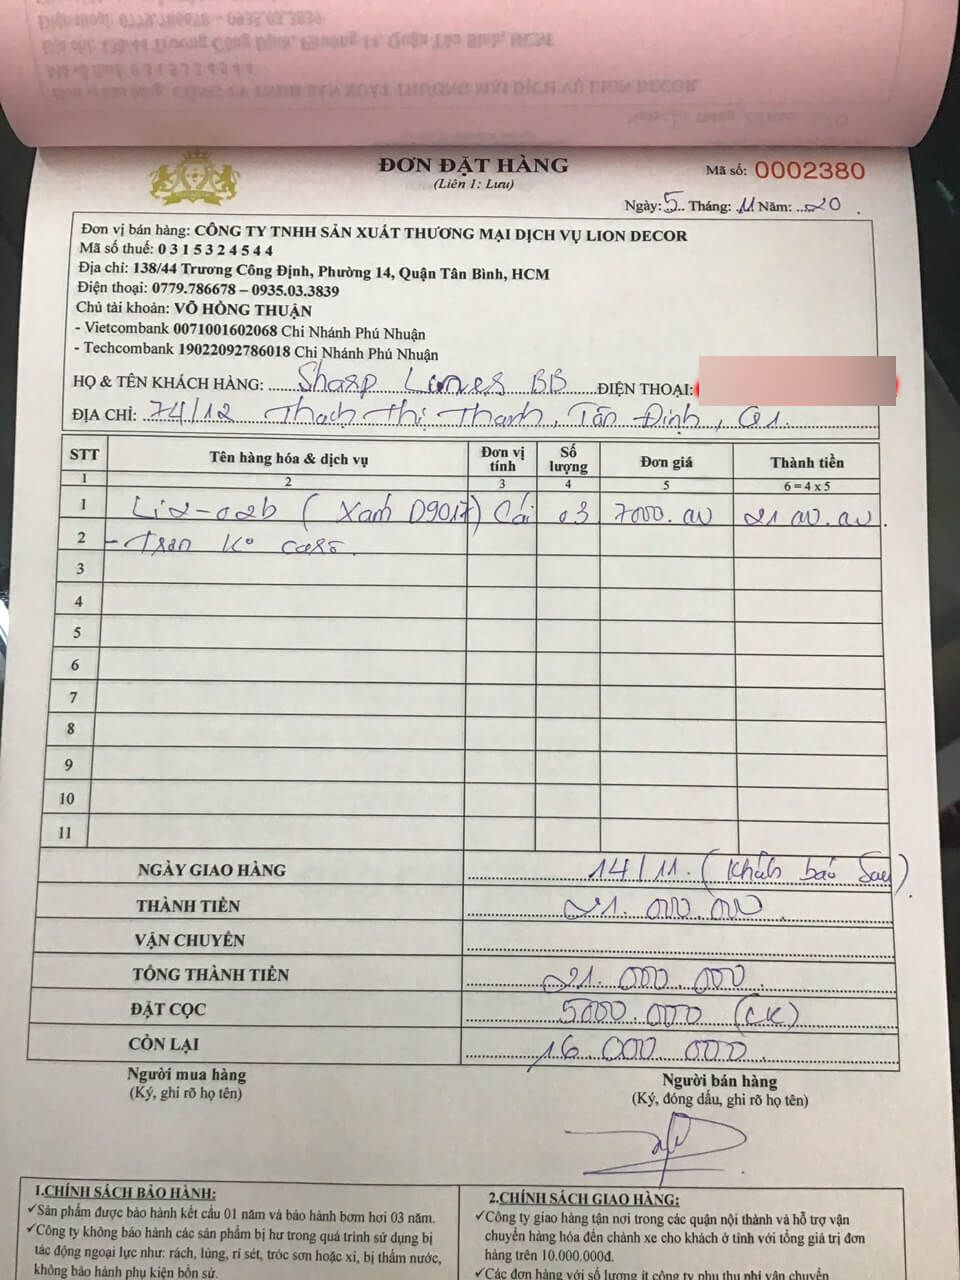 ĐƠN ĐẶT HÀNG
(Liên 1: Lưu)
Mã số: 0002380
Ngày: 5 Tháng: 11 Năm: 20
Đơn vị bán hàng: CÔNG TY TNHH SẢN XUẤT THƯƠNG MẠI DỊCH VỤ LION DECOR
Mã số thuế: 0 3 1 5 3 2 4 5 4 4
Địa chỉ: 138/44 Trương Công Định, Phường 14, Quận Tân Bình, HCM
Điện thoại: 0779.786678 – 0935.03.3839
Chủ tài khoản: VÕ HỒNG THUẬN
- Vietcombank 0071001602068 Chi Nhánh Phú Nhuận
- Techcombank 19022092786018 Chi Nhánh Phú Nhuận
HỌ & TÊN KHÁCH HÀNG: Sharp Lines BB ĐIỆN THOẠI:
ĐỊA CHỈ: 74/12 Thạch Thị Thanh, Tân Định, Q1.
STT Tên hàng hóa & dịch vụ Đơn vị tính Số lượng Đơn giá Thành tiền
1 2 3 4 5 6 = 4 x 5
1 Li2-02b (Xanh D9017) Cái 03 7000.000 21.000.000
2 - Tran Ko caro
3
4
5
6
7
8
9
10
11
NGÀY GIAO HÀNG 14/11. (Khách báo Sau)
THÀNH TIỀN 21.000.000
VẬN CHUYỂN
TỔNG THÀNH TIỀN 21.000.000
ĐẶT CỌC 5000.000 (CK)
CÒN LẠI 16.000.000
Người mua hàng Người bán hàng
(Ký, ghi rõ họ tên) (Ký, đóng dấu, ghi rõ họ tên)
1.CHÍNH SÁCH BẢO HÀNH:
✓Sản phẩm được bảo hành kết cấu 01 năm và bảo hành bơm hơi 03 năm.
✓Công ty không bảo hành các sản phẩm bị hư trong quá trình sử dụng bị
tác động ngoại lực như: rách, lủng, rỉ sét, tróc sơn hoặc xi, bị thấm nước,
không bảo hành phụ kiện bồn sứ.
2.CHÍNH SÁCH GIAO HÀNG:
✓Công ty giao hàng tận nơi trong các quận nội thành và hỗ trợ vận
chuyển hàng hóa đến chành xe cho khách ở tỉnh với tổng giá trị đơn
hàng trên 10.000.000đ.
✓Các đơn hàng với số lượng ít công ty phụ thu phí vận chuyển